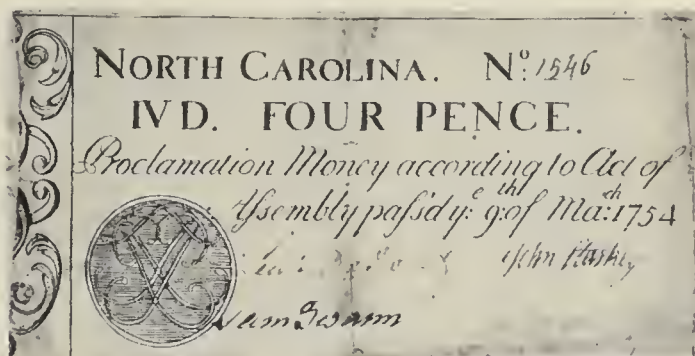 NORTH CAROLINA. Nº: 1546
IVD. FOUR PENCE.
Proclamation Money according to Act of
Assembly paſsd yᵉ: 9ᵗʰ: of Maᶜʰ: 1754
John
Sam Swann